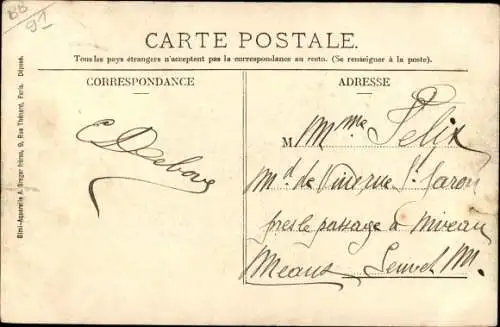 BB
91
CARTE POSTALE.
Tous les pays étrangers n'acceptent pas la correspondance au recto. (Se renseigner à la poste).
CORRESPONDANCE
ADRESSE
M Mme Félix
Md de Vin St
près le passage à Niveau
Meaux
E Debove
Dimi-Aquarelle A. Breger frères, 9, Rue Thénard, Paris. Déposé.